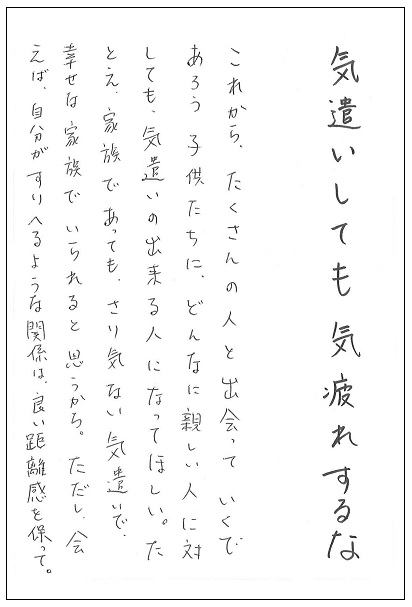 気遣いしても気疲れするな
これから、たくさんの人と出会っていくで
あろう子供たちに、どんなに親しい人に対
しても、気遣いの出来る人になってほしい。た
とえ、家族であっても、さり気ない気遣いで、
幸せな家族でいられると思うから。ただし、会
えば、自分がすりへるような関係は、良い距離感を保って。